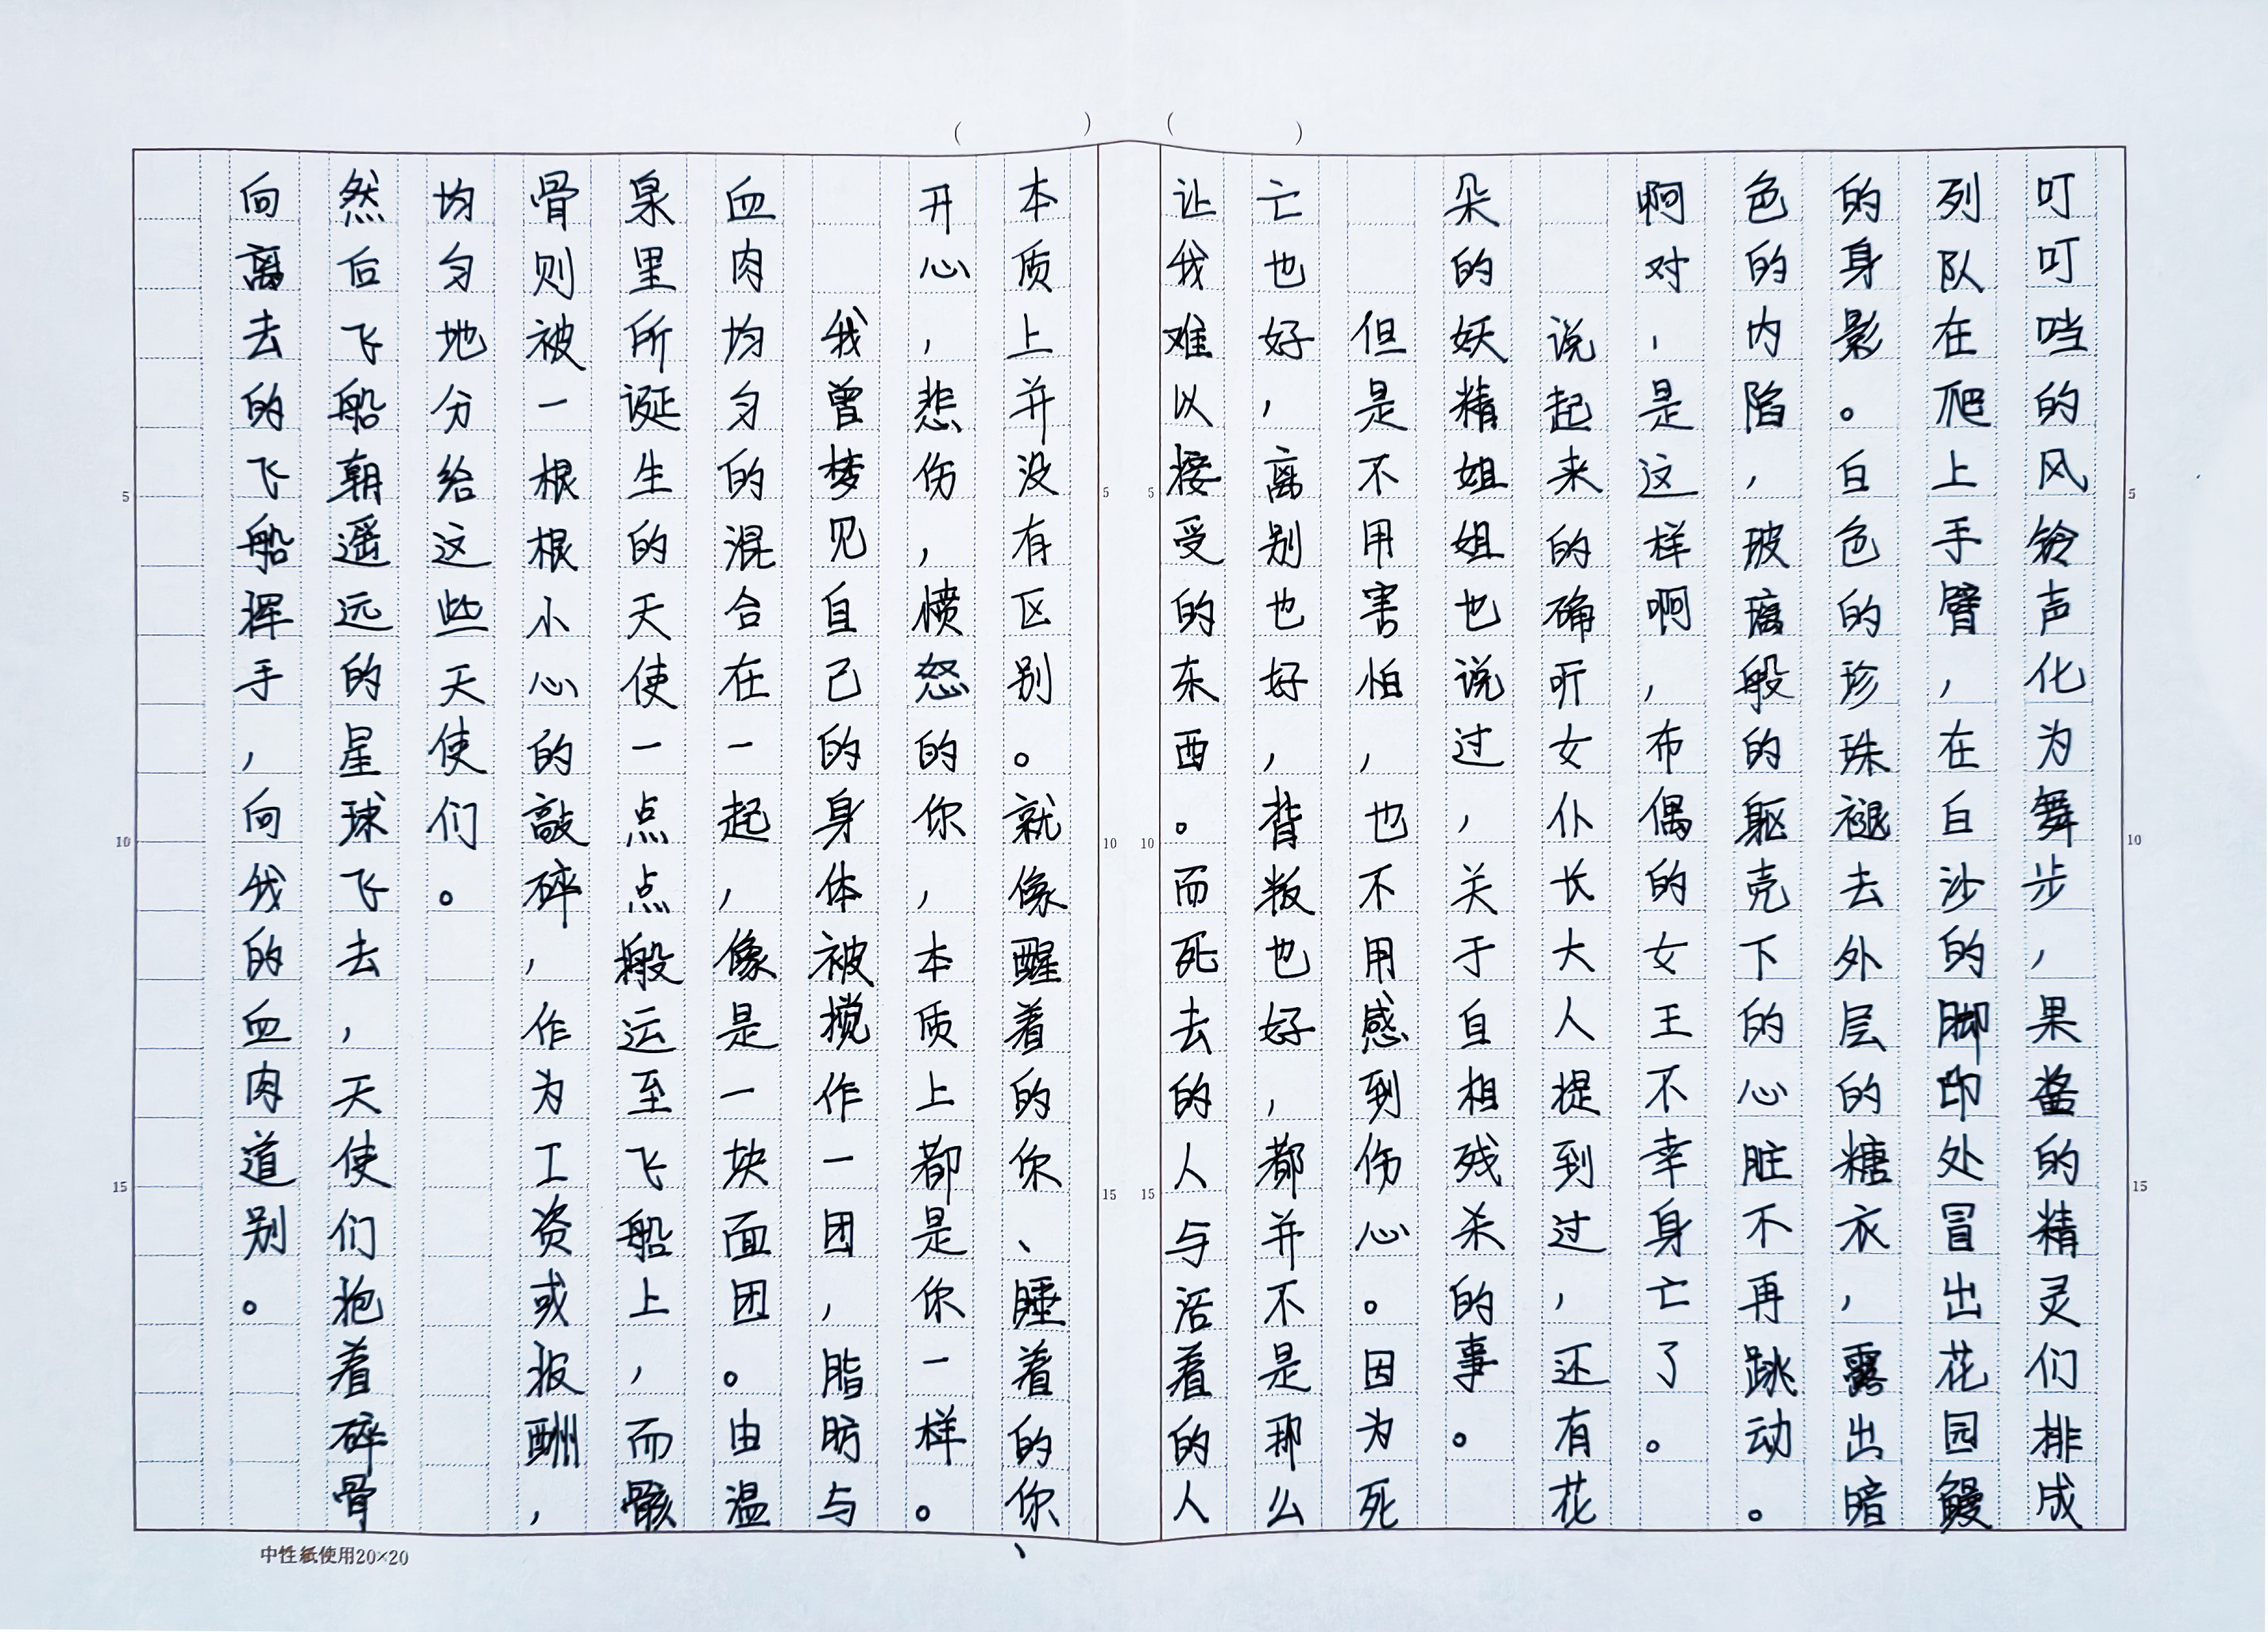 叮叮咣的风铃声化为舞步，果酱的精灵们排成
列队在爬上手臂，在白沙的脚印处冒出花园鳗
的身影。白色的珍珠褪去外层的糖衣，露出暗
色的内陷，玻璃般的躯壳下的心脏不再跳动。
啊对，是这样啊，布偶的女王不幸身亡了。
说起来的确听女仆长大人提到过，还有花
朵的妖精姐姐也说过，关于自相残杀的事。
但是不用害怕，也不用感到伤心。因为死
亡也好，离别也好，背叛也好，都并不是那么
让我难以接受的东西。而死去的人与活着的人
本质上并没有区别。就像醒着的你、睡着的你、
开心，悲伤，愤怒的你，本质上都是你一样。
我曾梦见自己的身体被搅作一团，脂肪与
血肉均匀的混合在一起，像是一块面团。由温
泉里所诞生的天使一点点搬运至飞船上，而骸
骨则被一根根小心的敲碎，作为工资或报酬，
均匀地分给这些天使们。
然后飞船朝遥远的星球飞去，天使们抱着碎骨
向离去的飞船挥手，向我的血肉道别。
( ) ( )
5 10 15 5 10 15 5 10 15 5 10 15
中性紙使用20×20